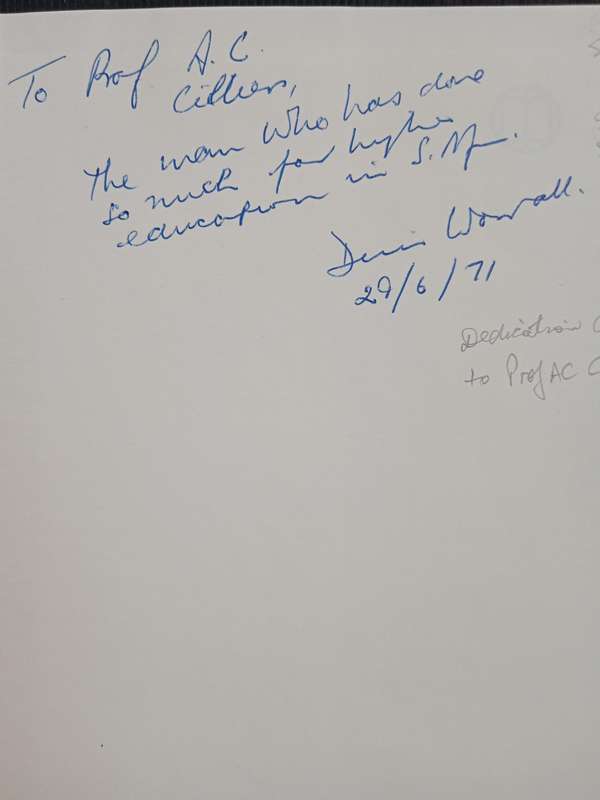 To Prof A. C.
Cilliers,
The man who has done
so much for higher
education in S. Afr.
Denis Worrall.
29/6/71
Dedication
to Prof AC C